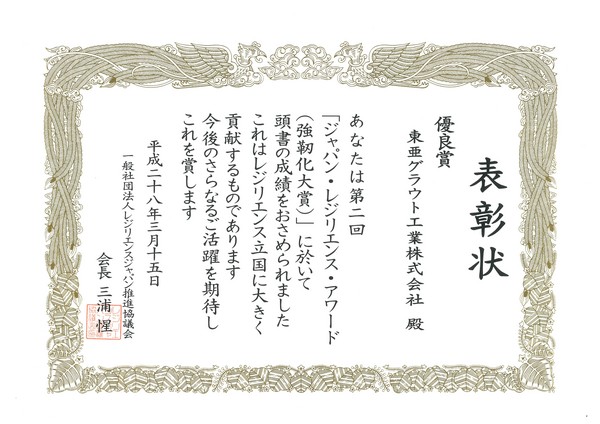 表彰状
優良賞
東亜グラウト工業株式会社 殿
あなたは第二回
「ジャパン・レジリエンス・アワード
（強靭化大賞）」に於いて
頭書の成績をおさめられました
これはレジリエンス立国に大きく
貢献するものであります
今後のさらなるご活躍を期待し
これを賞します
平成二十八年三月十五日
一般社団法人レジリエンスジャパン推進協議会
会長 三浦 惺